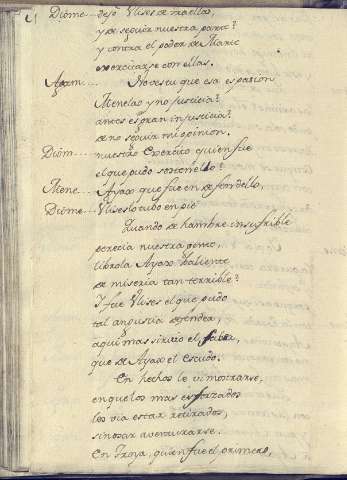 Diome... dejò Vlises de traellas,
y de seguir nuestra parte?
y contra el poder de Marte
exerciarse con ellas.
Agam... No ves tu que esa es pasion
Menelao y no justicia?
antes es gran injusticia?
de no seguir mi opinion.
Diom... nuestro Exercito quien fue
el que pudo sostenello?
Mene... Ayax que fue en defendello,
Diome... Vlises lo tubo en pie.
Quando de hambre insufrible
perecia nuestra gente,
librola Ayax Valiente
de miseria tan terrible?
I fue Vlises el que pudo
tal angustia defender,
aqui mas sirvio el saber,
que de Ayax el escudo.
En hechos le vi mostrarse,
en que los mas esforzados
los via estar retirados,
sin osar aventurarse.
En Troya, quien fue el primero,